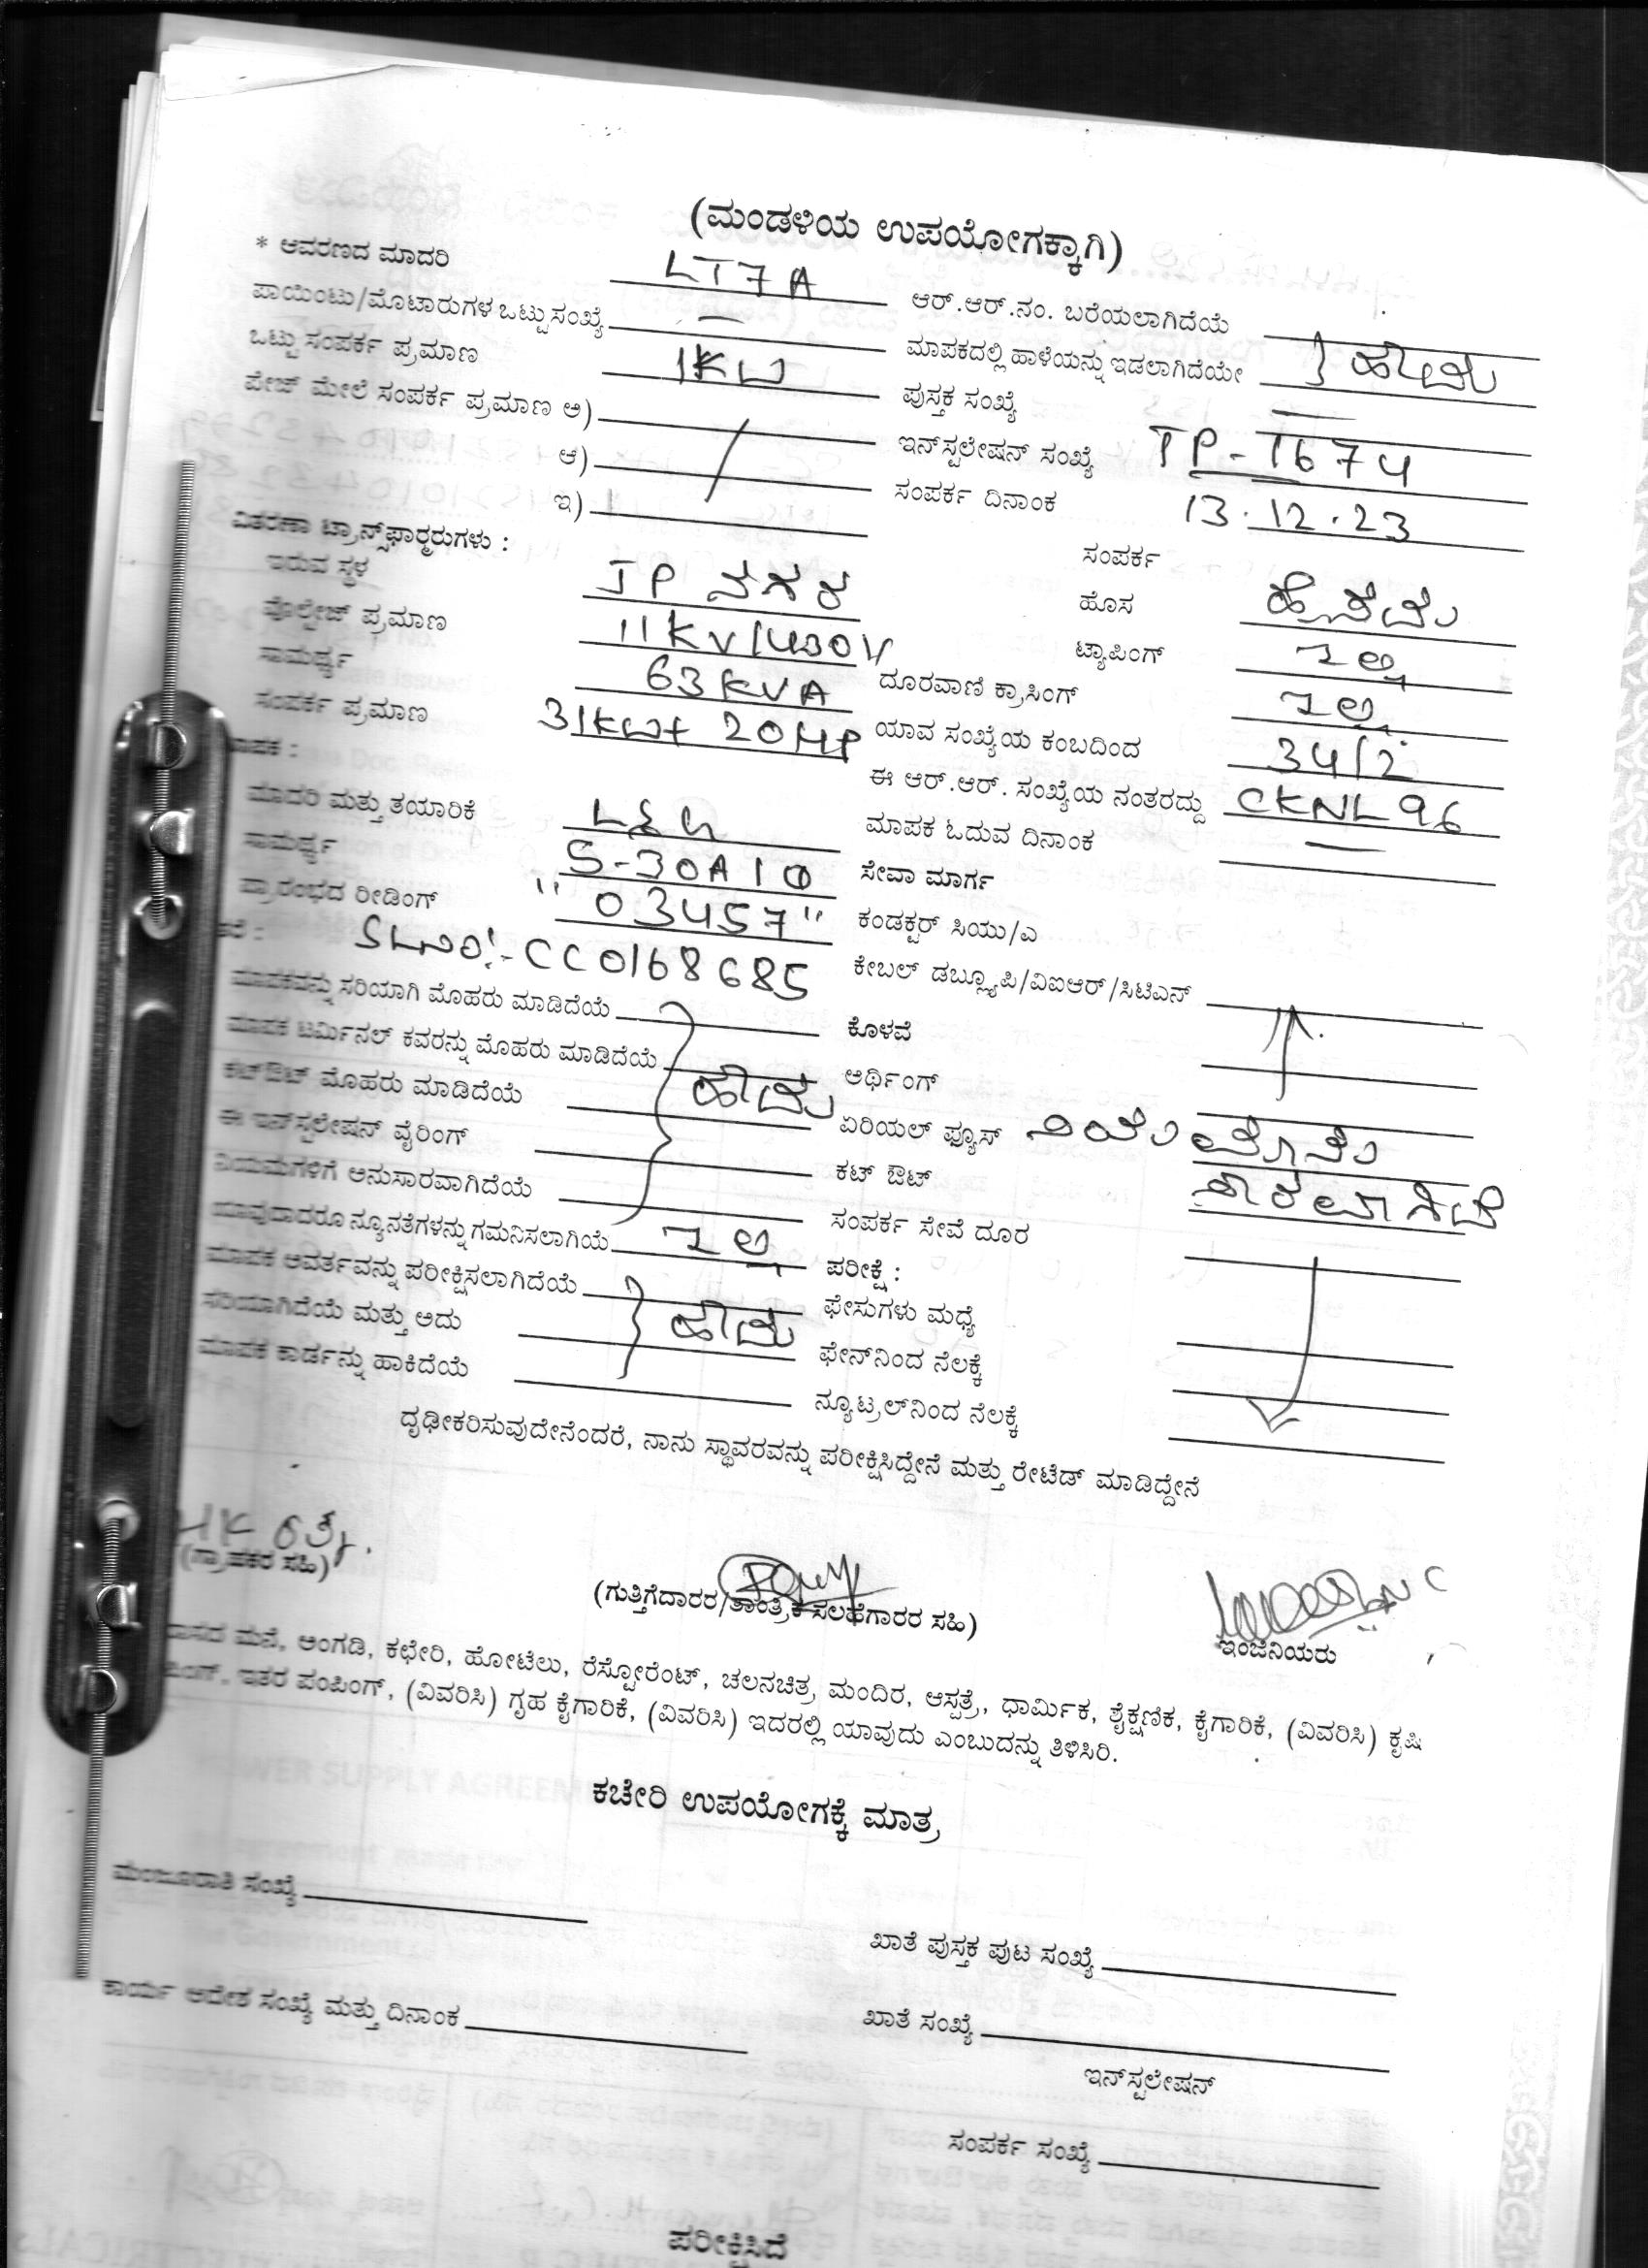 (ಮಂಡಳಿಯ ಉಪಯೋಗಕ್ಕಾಗಿ)
* ಆವರಣದ ಮಾದರಿ LT7A
ಆರ್.ಆರ್.ನಂ. ಬರೆಯಲಾಗಿದೆಯೆ
ಪಾಯಿಂಟು/ಮೊಟಾರುಗಳ ಒಟ್ಟು ಸಂಖ್ಯೆ —
ಮಾಪಕದಲ್ಲಿ ಹಾಳೆಯನ್ನು ಇಡಲಾಗಿದೆಯೇ } ಹೌದು
ಒಟ್ಟು ಸಂಪರ್ಕ ಪ್ರಮಾಣ 1KW
ಪುಸ್ತಕ ಸಂಖ್ಯೆ —
ಪೇಜ್ ಮೇಲೆ ಸಂಪರ್ಕ ಪ್ರಮಾಣ ಅ)
ಇನ್‌ಸ್ಟಲೇಷನ್ ಸಂಖ್ಯೆ TP-1674
ಆ)
ಸಂಪರ್ಕ ದಿನಾಂಕ 13.12.23
ಇ)
ವಿತರಣಾ ಟ್ರಾನ್ಸ್‌ಫಾರ್ಮರುಗಳು :
ಸಂಪರ್ಕ
ಇರುವ ಸ್ಥಳ JP ನಗರ
ಹೊಸ ಹೊಸದು
ವೊಲ್ಟೇಜ್ ಪ್ರಮಾಣ 11KV/430V
ಟ್ಯಾಪಿಂಗ್ ಇಲ್ಲ
ಸಾಮರ್ಥ್ಯ 63KVA
ದೂರವಾಣಿ ಕ್ರಾಸಿಂಗ್ ಇಲ್ಲ
ಸಂಪರ್ಕ ಪ್ರಮಾಣ 31KW+ 20HP
ಯಾವ ಸಂಖ್ಯೆಯ ಕಂಬದಿಂದ 34/2
ಈ ಆರ್.ಆರ್. ಸಂಖ್ಯೆಯ ನಂತರದ್ದು CKNL96
ಮಾದರಿ ಮತ್ತು ತಯಾರಿಕೆ L&G
ಮಾಪಕ ಓದುವ ದಿನಾಂಕ —
ಸಾಮರ್ಥ್ಯ 5-30A 1Φ
ಸೇವಾ ಮಾರ್ಗ
ಪ್ರಾರಂಭದ ರೀಡಿಂಗ್ "03457"
ಕಂಡಕ್ಟರ್ ಸಿಯು/ಎ
SLNO:- CC0168685
ಕೇಬಲ್ ಡಬ್ಲ್ಯೂಪಿ/ವಿಐಆರ್/ಸಿಟಿಎನ್
ಮಾಪಕವನ್ನು ಸರಿಯಾಗಿ ಮೊಹರು ಮಾಡಿದೆಯೆ
ಕೊಳವೆ
ಮಾಪಕ ಟರ್ಮಿನಲ್ ಕವರನ್ನು ಮೊಹರು ಮಾಡಿದೆಯೆ ಹೌದು
ಅರ್ಥಿಂಗ್
ಕಟ್‌ಔಟ್ ಮೊಹರು ಮಾಡಿದೆಯೆ
ಏರಿಯಲ್ ಫ್ಯೂಸ್
ಈ ಇನ್‌ಸ್ಟಲೇಷನ್ ವೈರಿಂಗ್
ಕಟ್ ಔಟ್
ನಿಯಮಗಳಿಗೆ ಅನುಸಾರವಾಗಿದೆಯೆ
ಸಂಪರ್ಕ ಸೇವೆ ದೂರ
ಯಾವುದಾದರೂ ನ್ಯೂನತೆಗಳನ್ನು ಗಮನಿಸಲಾಗಿಯೆ ಇಲ್ಲ
ಪರೀಕ್ಷೆ :
ಮಾಪಕ ಆವರ್ತವನ್ನು ಪರೀಕ್ಷಿಸಲಾಗಿದೆಯೆ
ಫೇಸುಗಳು ಮಧ್ಯೆ
ಸರಿಯಾಗಿದೆಯೆ ಮತ್ತು ಅದು ಹೌದು
ಫೇನ್‌ನಿಂದ ನೆಲಕ್ಕೆ
ಮಾಪಕ ಕಾರ್ಡನ್ನು ಹಾಕಿದೆಯೆ
ನ್ಯೂಟ್ರಲ್‌ನಿಂದ ನೆಲಕ್ಕೆ
ದೃಢೀಕರಿಸುವುದೇನೆಂದರೆ, ನಾನು ಸ್ಥಾವರವನ್ನು ಪರೀಕ್ಷಿಸಿದ್ದೇನೆ ಮತ್ತು ರೇಟೆಡ್ ಮಾಡಿದ್ದೇನೆ
(ಗ್ರಾಹಕರ ಸಹಿ)
(ಗುತ್ತಿಗೆದಾರರ/ತಾಂತ್ರಿಕ ಸಲಹೆಗಾರರ ಸಹಿ)
ಇಂಜಿನಿಯರು
ಮನೆ, ಅಂಗಡಿ, ಕಛೇರಿ, ಹೋಟೆಲು, ರೆಸ್ಟೋರೆಂಟ್, ಚಲನಚಿತ್ರ ಮಂದಿರ, ಆಸ್ಪತ್ರೆ, ಧಾರ್ಮಿಕ, ಶೈಕ್ಷಣಿಕ, ಕೈಗಾರಿಕೆ, (ವಿವರಿಸಿ) ಕೃಷಿ
ಇತರ ಪಂಪಿಂಗ್, (ವಿವರಿಸಿ) ಗೃಹ ಕೈಗಾರಿಕೆ, (ವಿವರಿಸಿ) ಇದರಲ್ಲಿ ಯಾವುದು ಎಂಬುದನ್ನು ತಿಳಿಸಿರಿ.
ಕಚೇರಿ ಉಪಯೋಗಕ್ಕೆ ಮಾತ್ರ
ಮಂಜೂರಾತಿ ಸಂಖ್ಯೆ
ಖಾತೆ ಪುಸ್ತಕ ಪುಟ ಸಂಖ್ಯೆ
ಕಾರ್ಯ ಆದೇಶ ಸಂಖ್ಯೆ ಮತ್ತು ದಿನಾಂಕ
ಖಾತೆ ಸಂಖ್ಯೆ
ಇನ್‌ಸ್ಟಲೇಷನ್
ಸಂಪರ್ಕ ಸಂಖ್ಯೆ
ಪರೀಕ್ಷಿಸಿದೆ